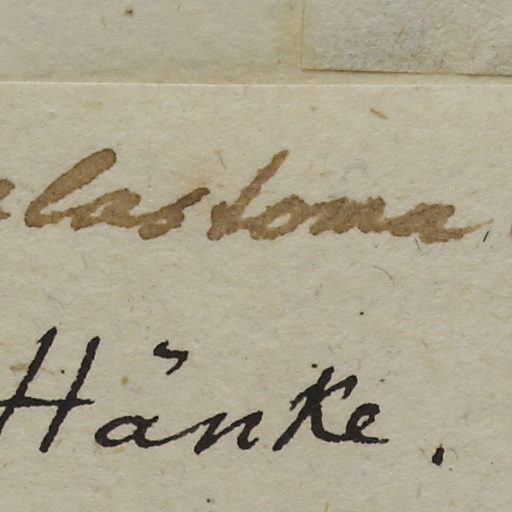 elastoma
Hänke.